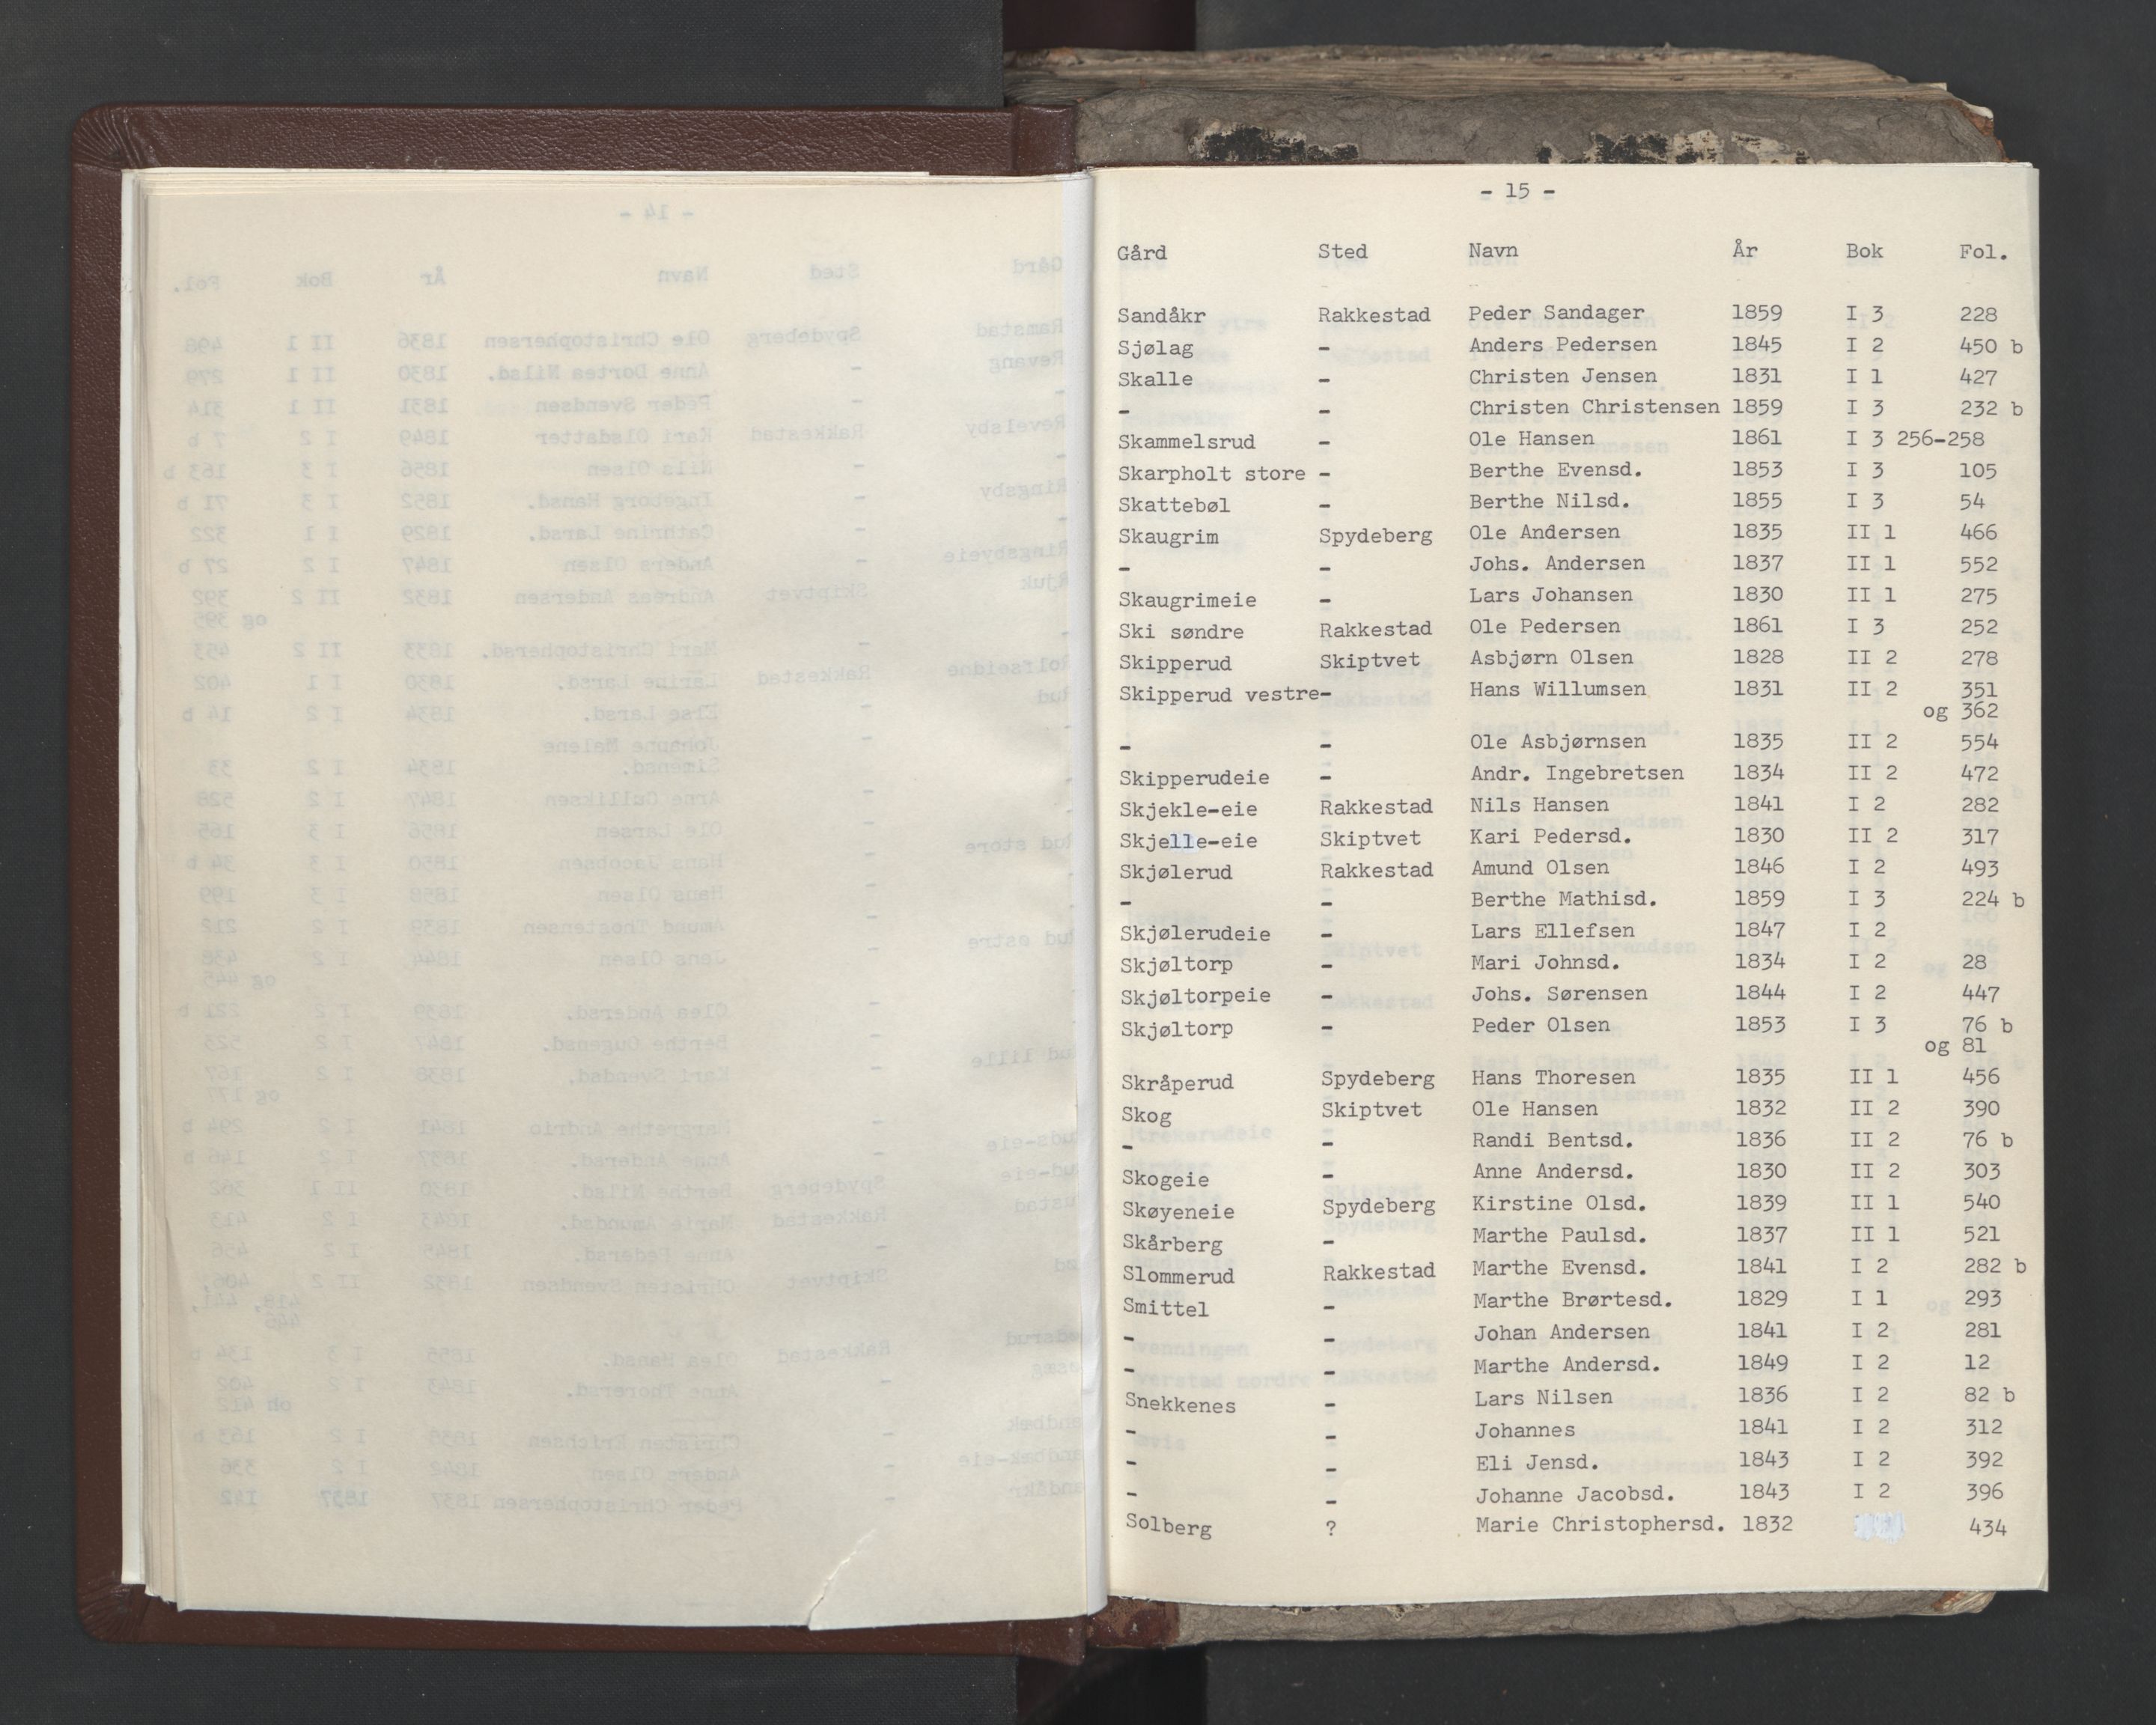 - 15 -
Gård Sted Navn År Bok Fol.
Sandåkr Rakkestad Peder Sandager 1859 I 3 228
Sjølag - Anders Pedersen 1845 I 2 450 b
Skalle - Christen Jensen 1831 I 1 427
- - Christen Christensen 1859 I 3 232 b
Skammelsrud - Ole Hansen 1861 I 3 256-258
Skarpholt store - Berthe Evensd. 1853 I 3 105
Skattebøl - Berthe Nilsd. 1855 I 3 54
Skaugrim Spydeberg Ole Andersen 1835 II 1 466
- - Johs. Andersen 1837 II 1 552
Skaugrimeie - Lars Johansen 1830 II 1 275
Ski søndre Rakkestad Ole Pedersen 1861 I 3 252
Skipperud Skiptvet Asbjørn Olsen 1828 II 2 278
Skipperud vestre- Hans Willumsen 1831 II 2 351
og 362
- - Ole Asbjørnsen 1835 II 2 554
Skipperudeie - Andr. Ingebretsen 1834 II 2 472
Skjekle-eie Rakkestad Nils Hansen 1841 I 2 282
Skjelle-eie Skiptvet Kari Pedersd. 1830 II 2 317
Skjølerud Rakkestad Amund Olsen 1846 I 2 493
- - Berthe Mathisd. 1859 I 3 224 b
Skjølerudeie - Lars Ellefsen 1847 I 2
Skjøltorp - Mari Johnsd. 1834 I 2 28
Skjøltorpeie - Johs. Sørensen 1844 I 2 447
Skjøltorp - Peder Olsen 1853 I 3 76 b
og 81
Skråperud Spydeberg Hans Thoresen 1835 II 1 456
Skog Skiptvet Ole Hansen 1832 II 2 390
- - Randi Bentsd. 1836 II 2 76 b
Skogeie - Anne Andersd. 1830 II 2 303
Skøyeneie Spydeberg Kirstine Olsd. 1839 II 1 540
Skårberg - Marthe Paulsd. 1837 II 1 521
Slommerud Rakkestad Marthe Evensd. 1841 I 2 282 b
Smittel - Marthe Brørtesd. 1829 I 1 293
- - Johan Andersen 1841 I 2 281
- - Marthe Andersd. 1849 I 2 12
Snekkenes - Lars Nilsen 1836 I 2 82 b
- - Johannes 1841 I 2 312
- - Eli Jensd. 1843 I 2 392
- - Johanne Jacobsd. 1843 I 2 396
Solberg ? Marie Christophersd. 1832 434